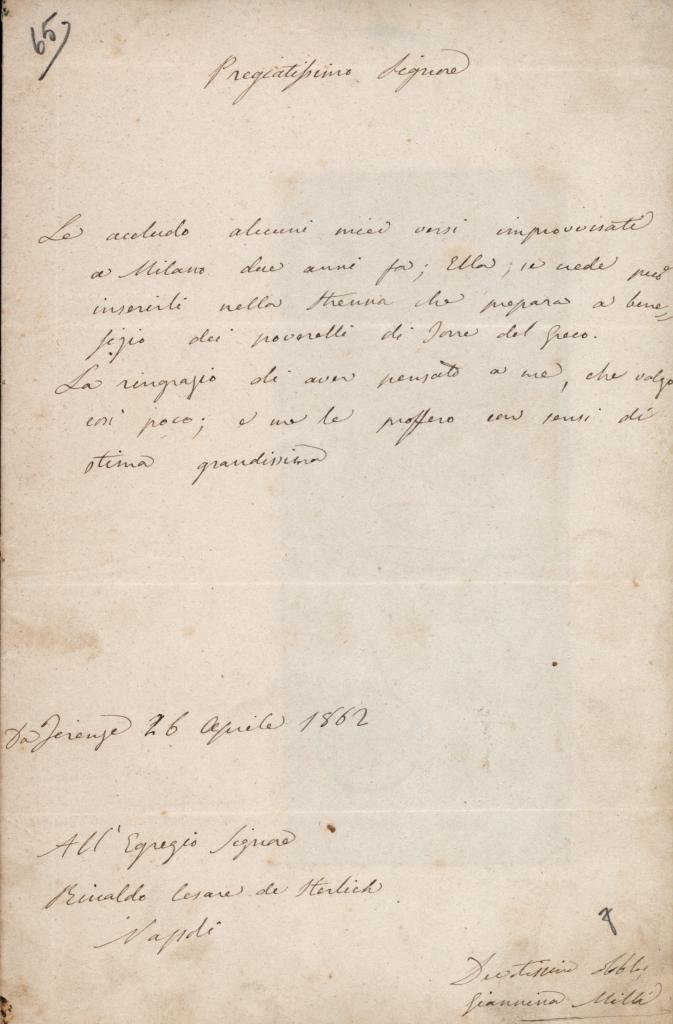 65)
Pregiatissimo Signore
Le accludo alcuni miei versi improvvisati
a Milano due anni fa; Ella, se crede può
inserirli nella Strenna che prepara a bene=
fizio dei poverelli di Torre del Greco.
La ringrazio di aver pensato a me, che valgo
così poco; e me le proffero con sensi di
stima grandissima
Da Firenze 26 Aprile 1862
All' Egregio Signore
Rinaldo Cesare de Sterlich
Napoli
Devotissima Obbl
Giannina Milli